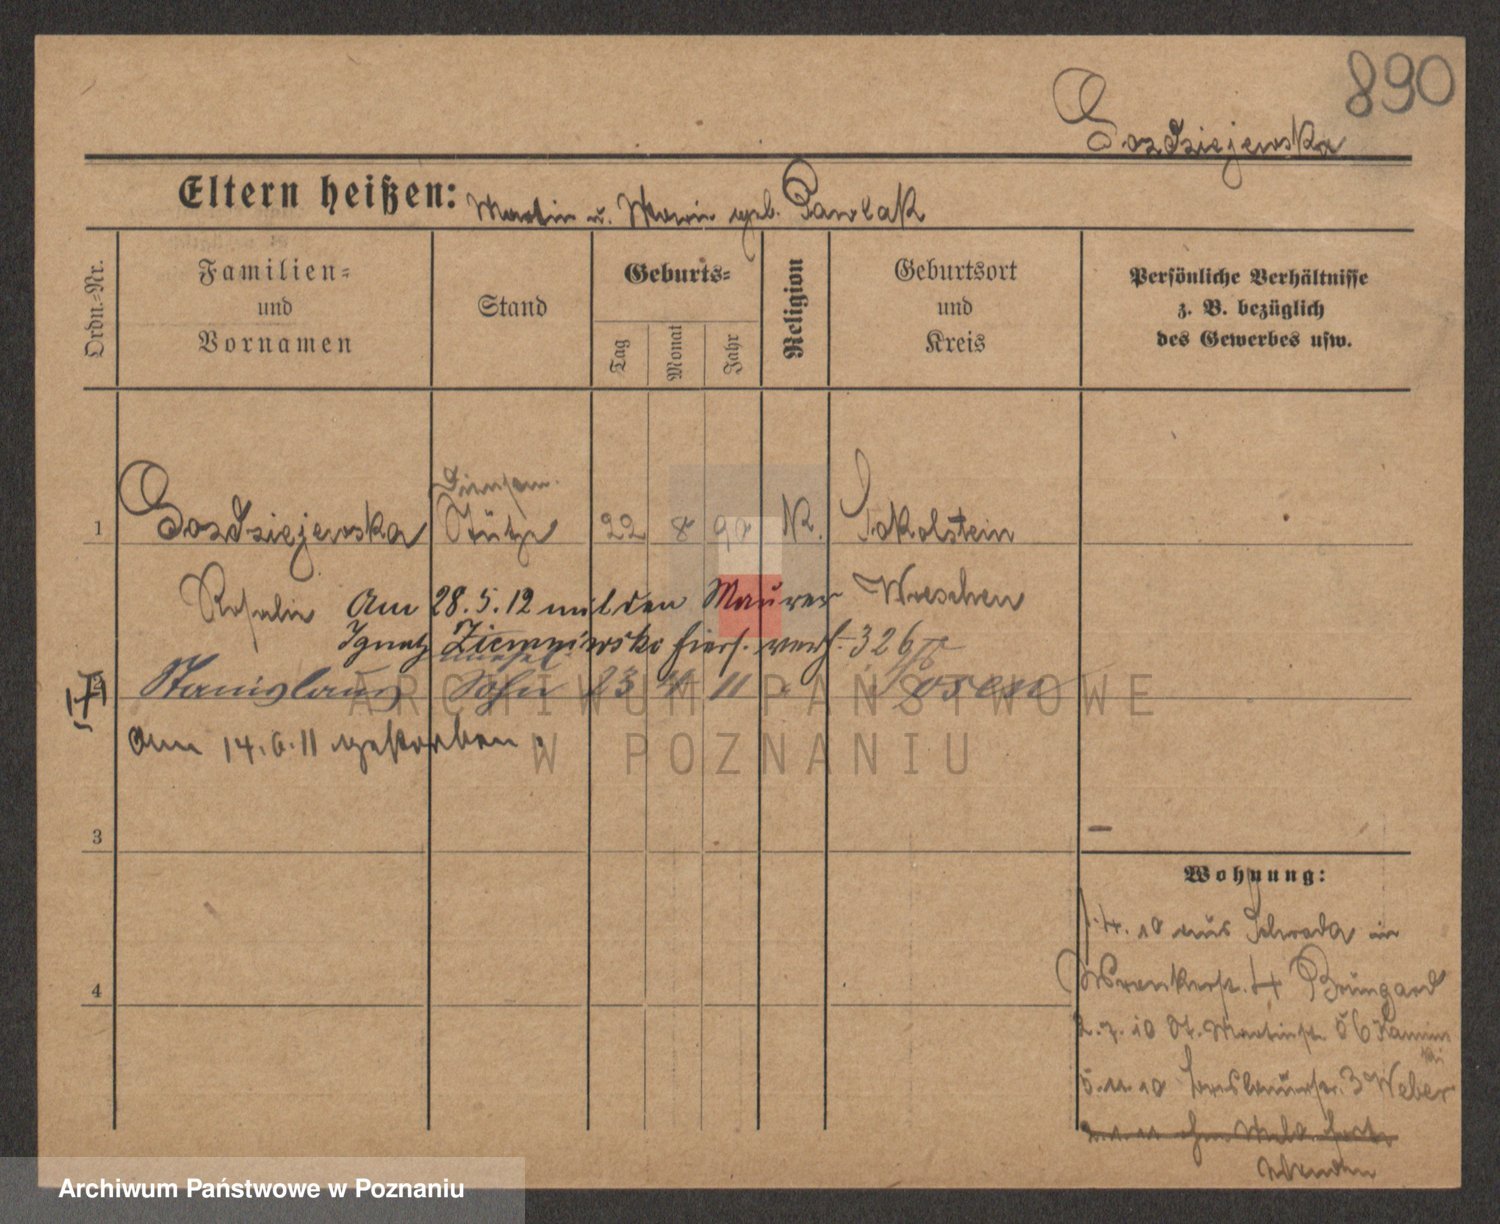 890
Gozdziejewska
Eltern heißen: Martin u. Marie geb. Pawlak
Ordn.-Nr.
Familien-
und
Vornamen
Stand
Geburts-
Tag
Monat
Jahr
Religion
Geburtsort
und
Kreis
Persönliche Verhältnisse
z. B. bezüglich
des Gewerbes usw.
1 Gozdziejewska Stütze 22 8 90 K. Sokolstein
Rosalie Wreschen
Am 28.5.12 mit den Maurer
Ignatz Ziemniewski hier verh. 326
Stanislaus Sohn 23 4 11 Posen
am 14.6.11 gestorben.
3
4
Wohnung:
4. 10 aus Schroda in
Wronkerstr. 4 Baumgard
2. 7. 10 St. Martinstr. 56
5. 11. 10 3 Weber
ARCHIWUM PAŃSTWOWE
W POZNANIU
Archiwum Państwowe w Poznaniu